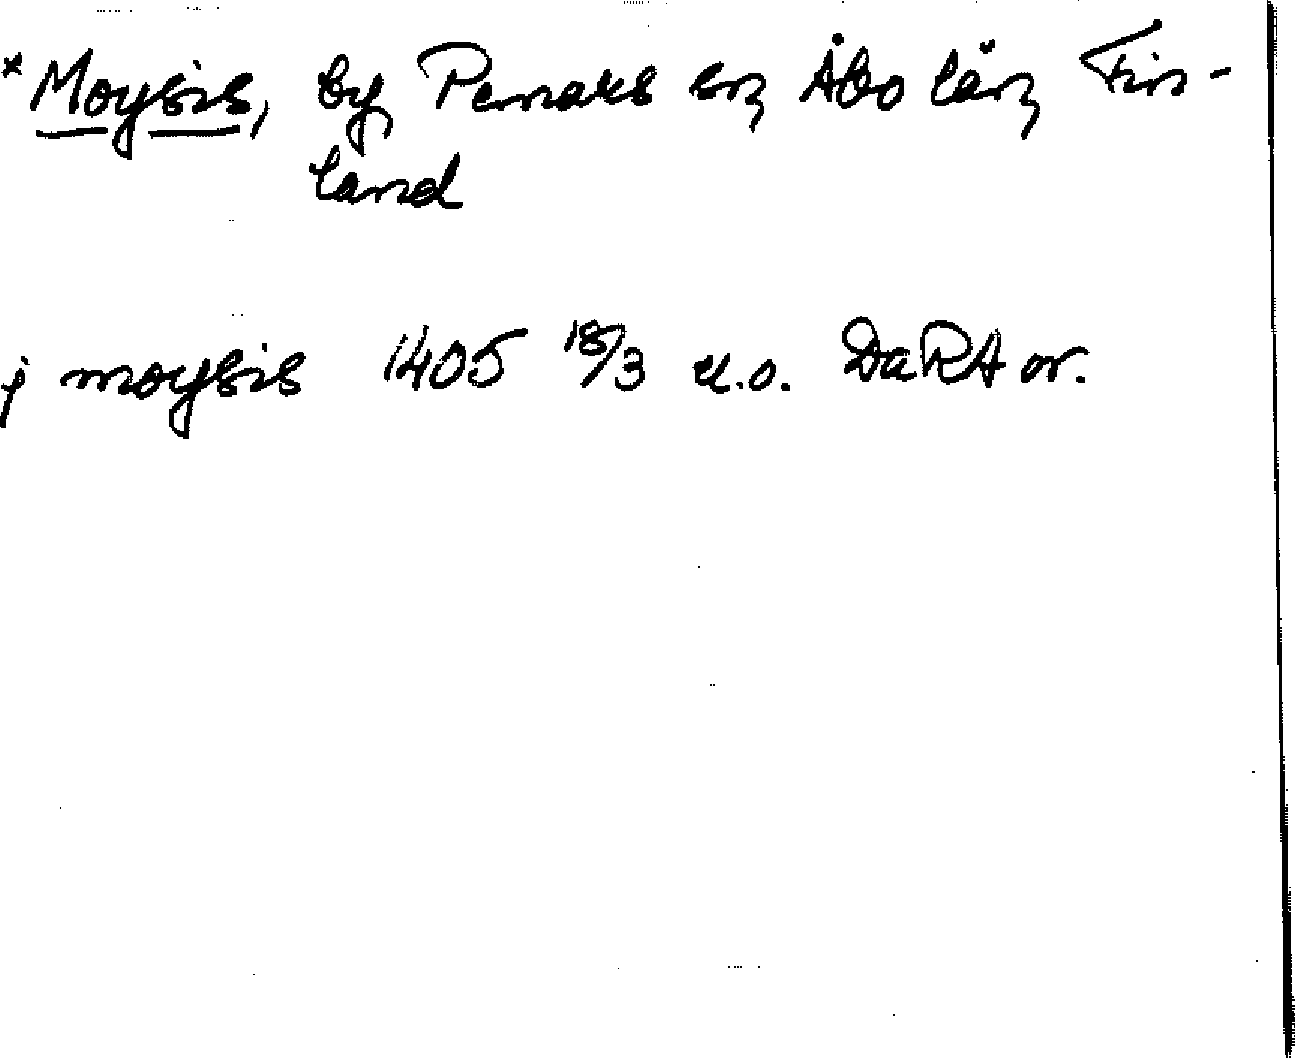 * Moysis, by Pemars sn, Åbo län, Fin-
land
j moysis 1405 18/3 u.o. DaRA or.